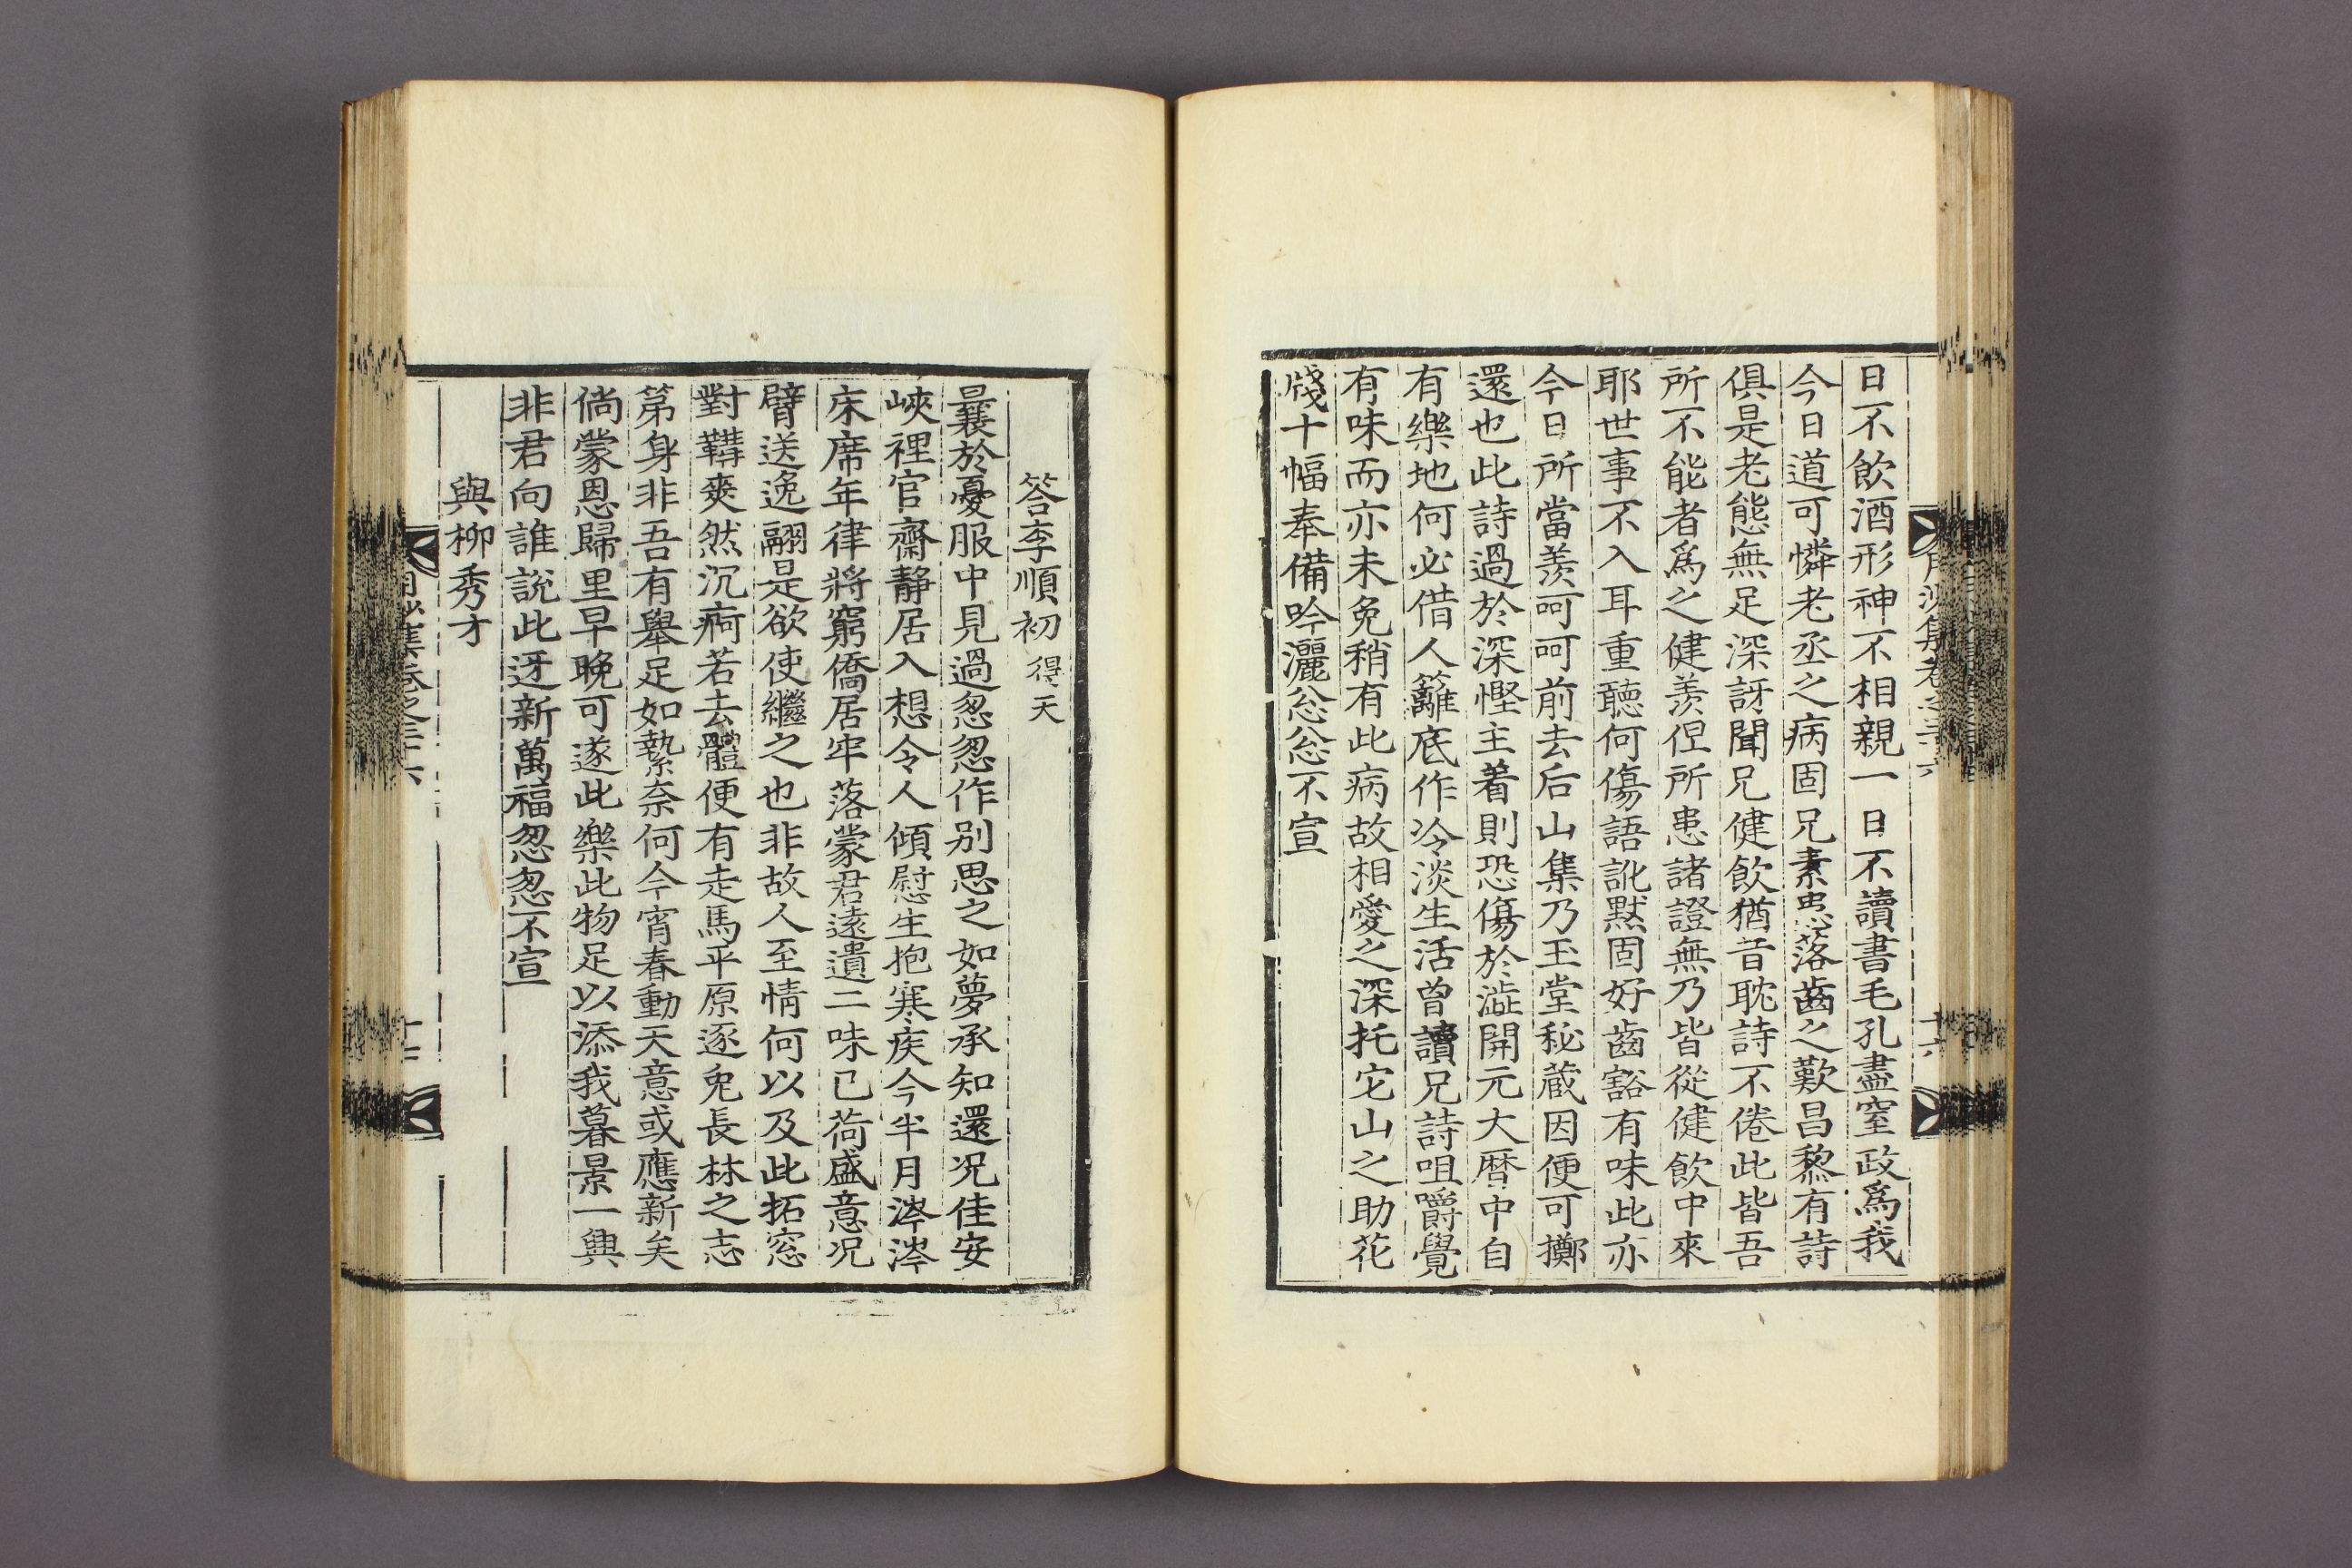 日不飮酒形神不相親一日不讀書毛孔盡窒政爲我
今日道可憐老丞之病固兄素患落齒之歎昌黎有詩
俱是老態無足深訝聞兄健飮猶昔耽詩不倦此皆吾
所不能者爲之健羡但所患諸證無乃皆從健飮中來
耶世事不入耳重聽何傷語訛默固好齒豁有味此亦
今日所當羡呵呵前去后山集乃玉堂秘藏因便可擲
還也此詩過於深慳主着則恐傷於澁開元大曆中自
有樂地何必借人籬底作冷淡生活曾讀兄詩咀嚼覺
有味而亦未免稍有此病故相愛之深托它山之助花
牋十幅奉備吟灑忩忩不宣
月沙集卷之三十六
十六
答李順初 得天
曩於憂服中見過怱怱作別思之如夢承知還况佳安
峽裡官齋靜居入想令人傾慰生抱寒疾今半月涔涔
床席年律將窮僑居牢落蒙君遠遺二味已荷盛意况
臂送逸翮是欲使繼之也非故人至情何以及此拓窓
對鞲爽然沉痾若去體便有走馬平原逐兔長林之志
第身非吾有擧足如縶奈何今宵春動天意或應新矣
倘蒙恩歸里早晚可遂此樂此物足以添我暮景一興
非君向誰說此迓新萬福怱怱不宣
與柳秀才
月沙集卷之三十六
十七